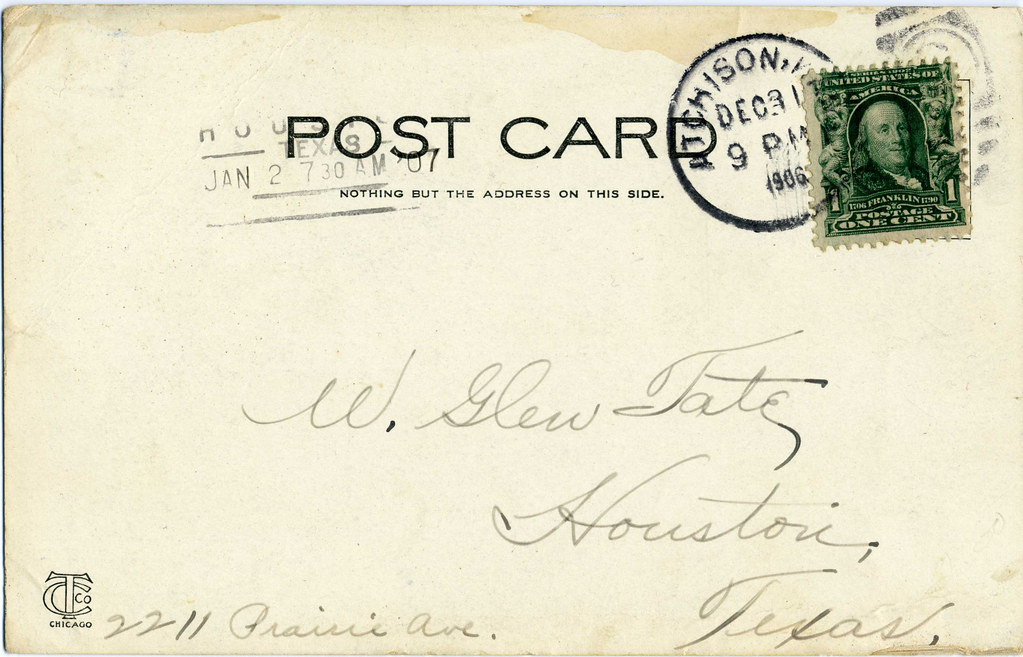 POST CARD
NOTHING BUT THE ADDRESS ON THIS SIDE.
HOUS
TEXAS
JAN 2 730 AM '07
ATCHISON, K
DEC 31
9 PM
1906
SERIES 1902
UNITED STATES OF
AMERICA
1706 FRANKLIN 1790
1 POSTAGE 1
ONE CENT
W. Glen Tate
Houston,
Texas.
2211 Prairie Ave.
TC CO
CHICAGO